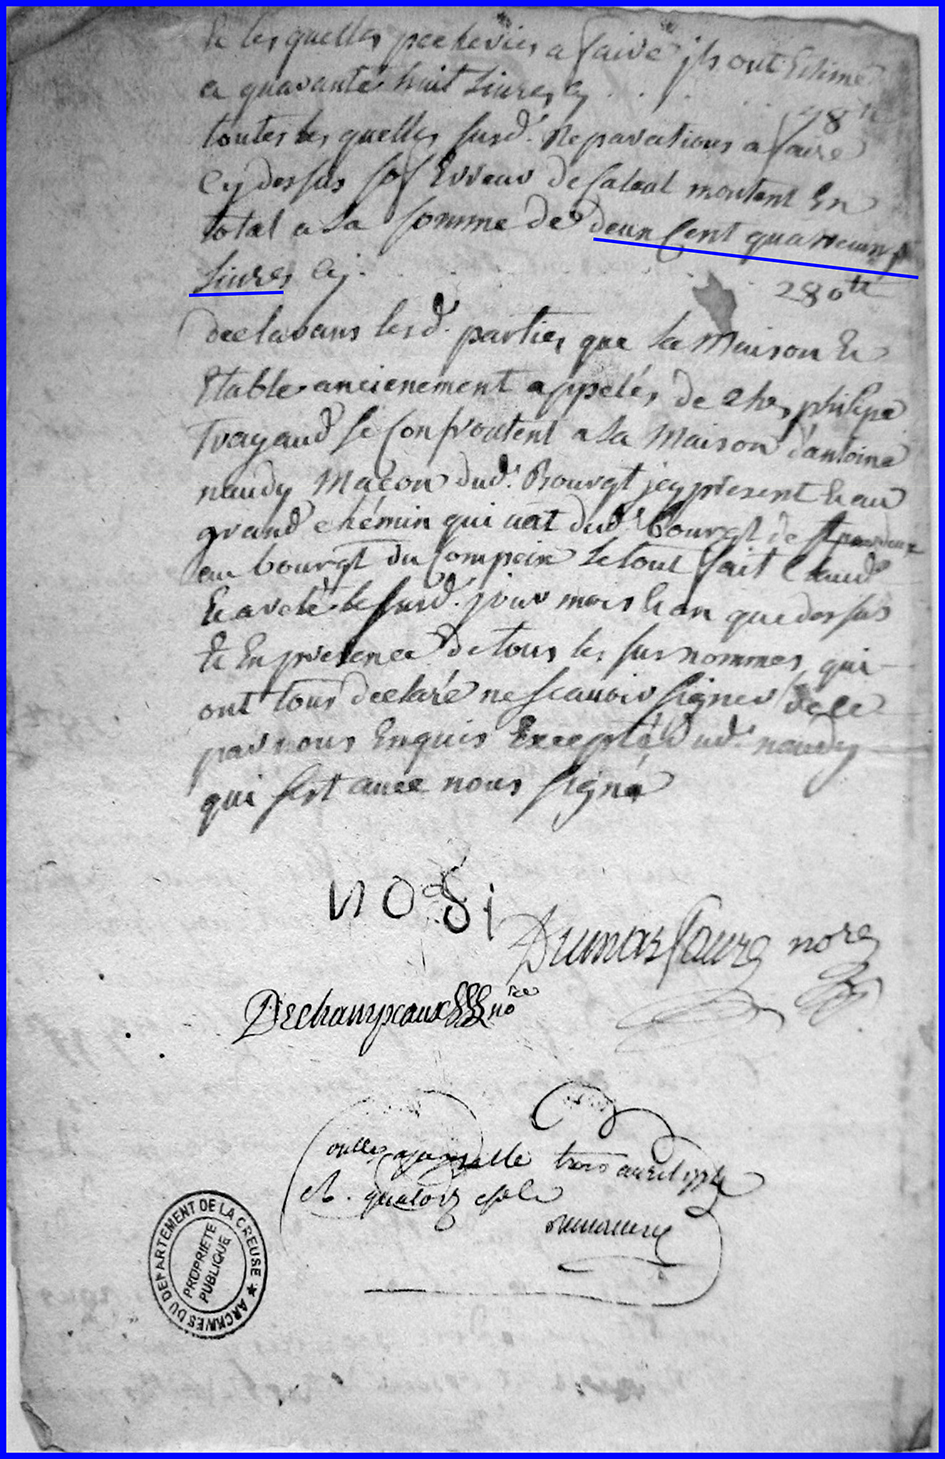 & les quelles pacheries a faire ils ont Estimé
a quarante huit Livres cy . . . 48tt
toutes les quelles susd. Reparations a faire
Cy dessus sof Erreur de Calcal montent En
total a la somme de deux Cent quatrevingt
Livres Cy . . . 280tt
declarans lesd. parties que la Maison &
Etable anciennement appelés de philipe
Trayaud se Confrontent a la Maison d'antoine
naudy Macon dud. Bourgt jcy present & au
grand chémin qui vat dud. Bourgt de
au bourgt du Compeix le tout fait Claud
& areté le susd. jour mois & an que dessus
& En presence de tous les sus nommes qui
ont tous declaré ne scauoir signer de ce
par nous Enquis Excepté dud. naudy
qui sest auec nous signé
NODi
Dumas faure nore
Dechampeaux nore
trois auril 1774
R. quatorz
ARCHIVES DU DEPARTEMENT DE LA CREUSE ★
PROPRIETE
PUBLIQUE